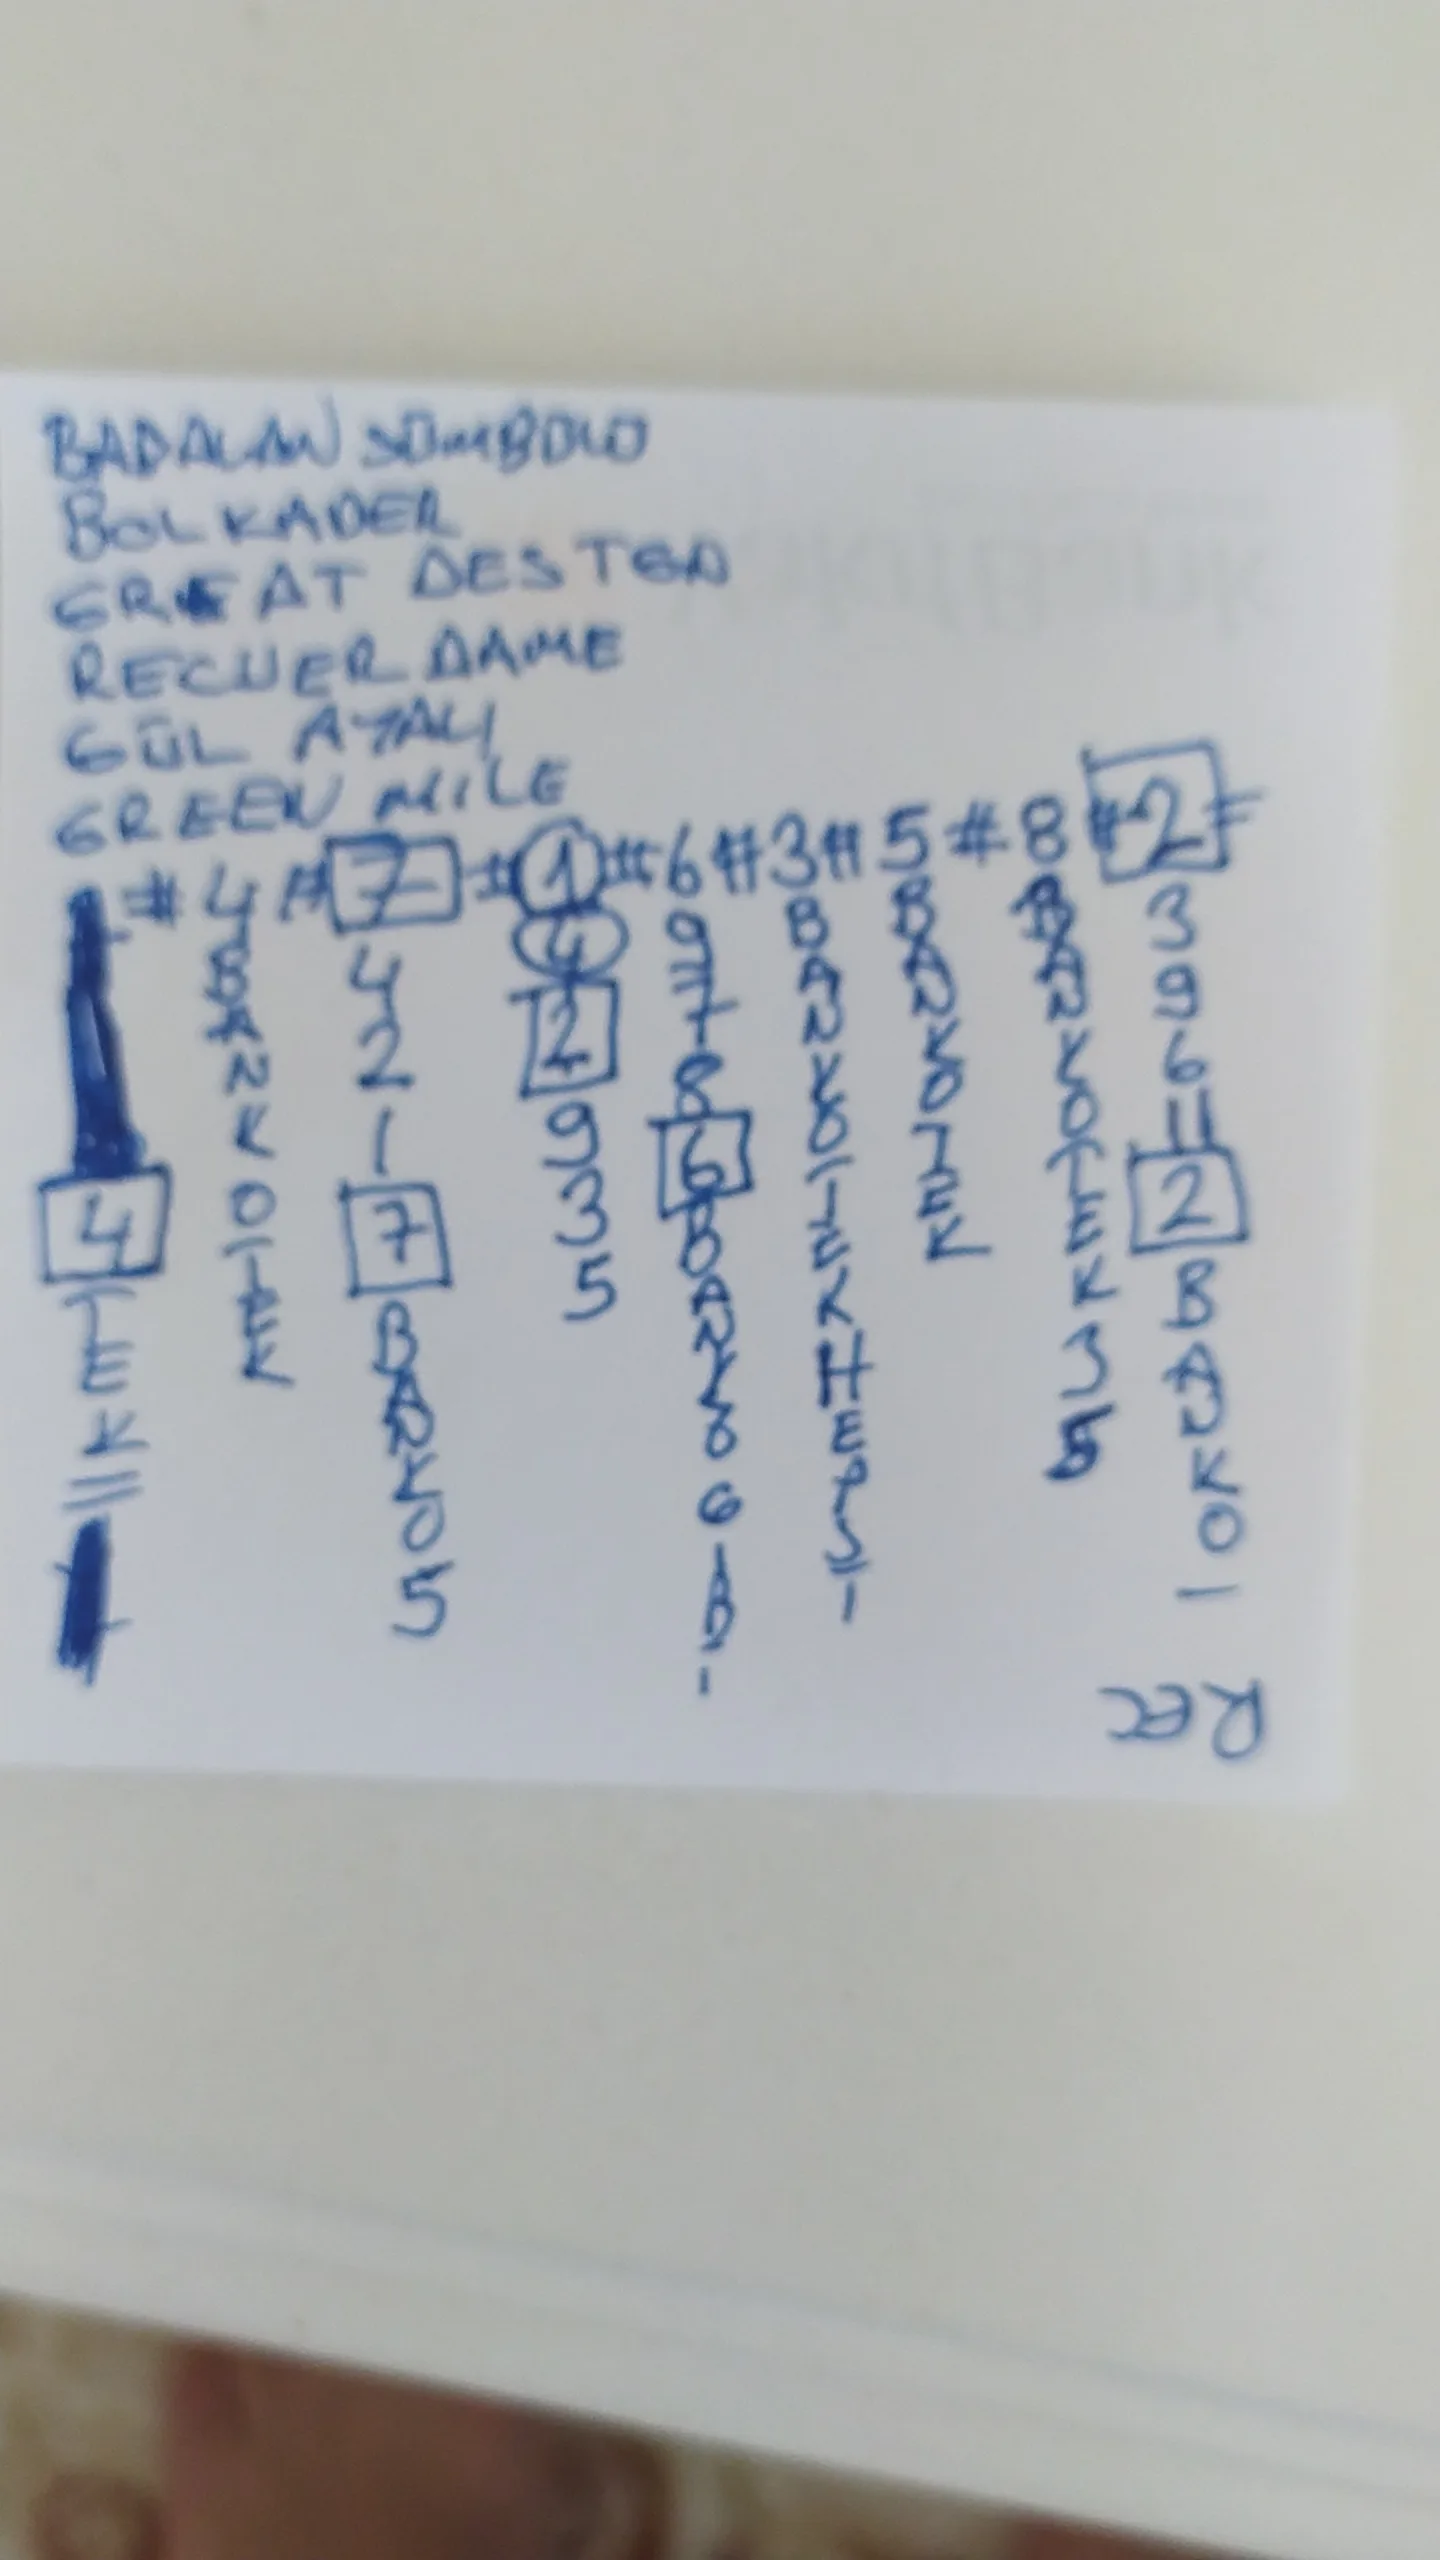 BADALAN SÜMBÜLÜ
BOL KADER
GREAT DESTGD
RECUERDAME
GÜL AYALI
GREEN MILE
# 4 # 7 # 1 # 6 # 3 # 5 # 8 # 2 #
4 TEK
BANKO TEK
4 2 1 7 BANKO 5
4 2 9 3 5
9 7 8 6 BANKO GİBİ
BANKO TEK HEPSİ
BANKO TEK
BANKO TEK 3 5
3 9 6 11 2 BANKO 1
REC